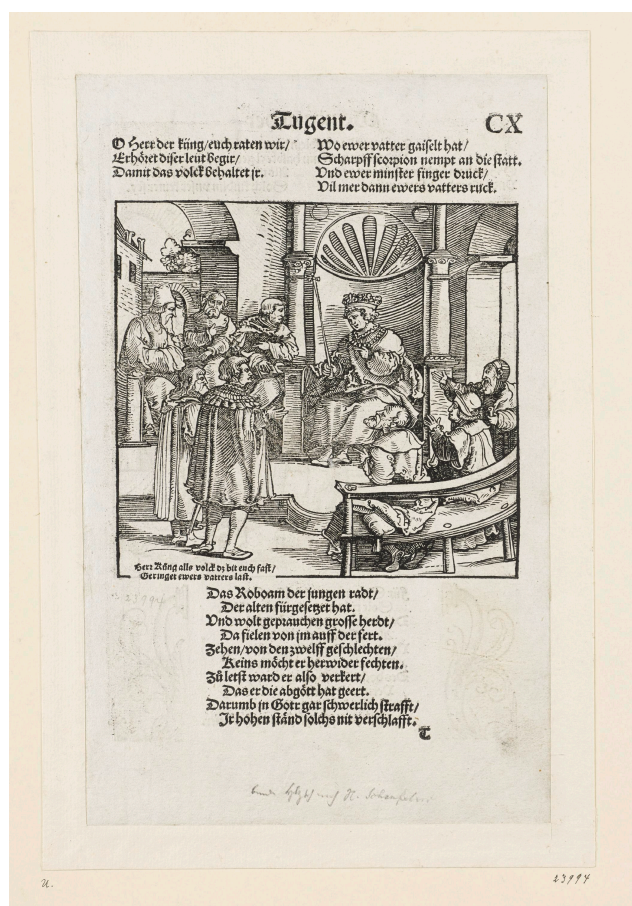 Tugent.
CX
O Herr der küng/ euch raten wir/
Erhöret diser leüt begir/
Damit das volck behaltet jr.
Wo ewer vatter gaiselt hat/
Scharpff scorpion nempt an die statt.
Vnd ewer minster finger druck/
Vil mer dann ewers vatters ruck.
Herr Küng alls volck dz bit euch fast/
Geringet ewers vatters last.
23994
Das Roboam der jungen radt/
Der alten fürgesetzet hat.
Vnd wolt geprauchen grosse herdt/
Da fielen von jm auff der fert.
Zehen/ von den zwelff geschlechten/
Keins möcht er herwider fechten.
Zů letst ward er also verkert/
Das er die abgött hat geert.
Darumb jn Gott gar schwerlich strafft/
Jr hohen ständ solchs nit verschlafft.
T
u.
23994